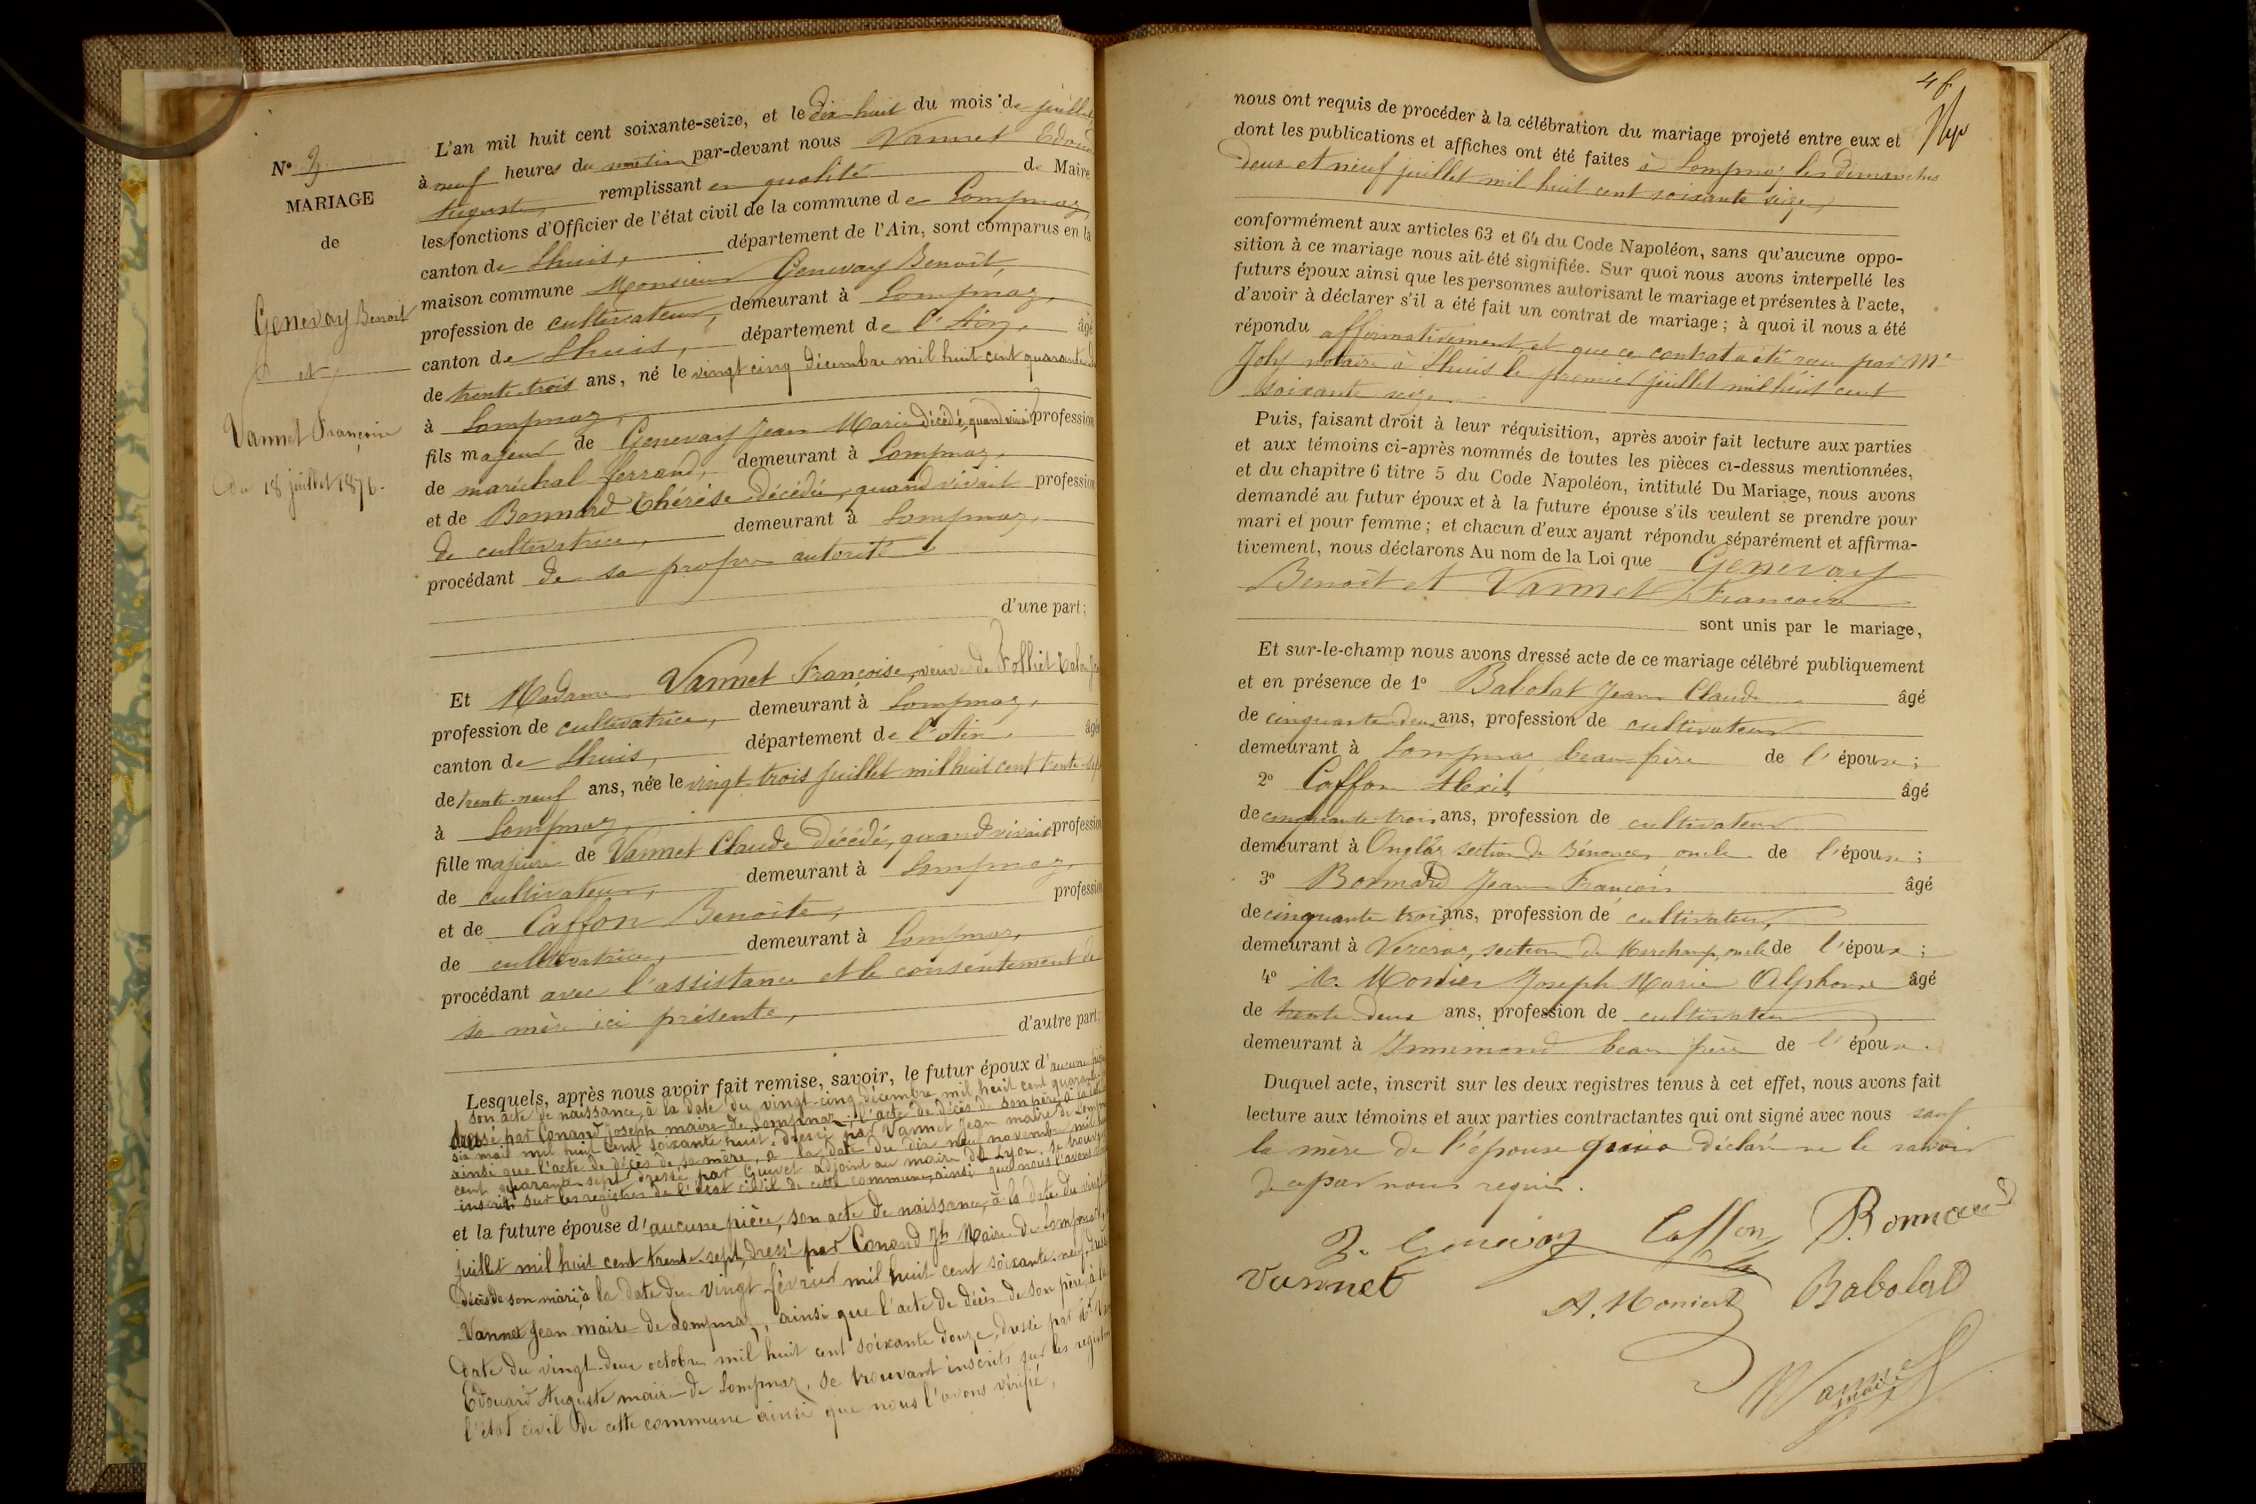 N° 3
MARIAGE
de
Genevay Benoit
et
Vannet Françoise
Du 18 juillet 1876.
L'an mil huit cent soixante-seize, et le dix-huit du mois de juillet
à neuf heures du matin par-devant nous Vannet Edouard
Auguste, remplissant en qualité de Maire
les fonctions d'Officier de l'état civil de la commune de Lompnaz,
canton de Lhuis, département de l'Ain, sont comparus en la
maison commune Monsieur Genevay Benoît,
profession de cultivateur, demeurant à Lompnaz,
canton de Lhuis, département de l'Ain, âgé
de trente-trois ans, né le vingt cinq décembre mil huit cent quarante
à Lompnaz,
fils majeur de Genevay Jean Marie décédé, quand vivait profession
de maréchal ferrand, demeurant à Lompnaz,
et de Bonnard Thérèse décédée, quand vivait profession
de cultivatrice, demeurant à Lompnaz,
procédant de sa propre autorité
d'une part;
Et Madame Vannet Françoise, veuve de Folliet
profession de cultivatrice, demeurant à Lompnaz,
canton de Lhuis, département de l'Ain, âgée
de trente-neuf ans, née le vingt-trois juillet mil huit cent trente-sept
à Lompnaz
fille majeure de Vannet Claude décédé, quand vivait profession
de cultivateur, demeurant à Lompnaz,
et de Caffon Benoîte, profession
de cultivatrice, demeurant à Lompnaz,
procédant avec l'assistance et le consentement de
sa mère ici présente,
d'autre part;
Lesquels, après nous avoir fait remise, savoir, le futur époux d'aucune pièce
son acte de naissance, à la date du vingt-cinq décembre mil huit cent quarante
dressé par Conand Joseph maire de Lompnaz; l'acte de décès de son père à la date
six mai mil huit cent soixante huit, dressé par Vannet Jean maire de Lompnaz
ainsi que l'acte de décès de sa mère, à la date du dix neuf novembre mil
cent quarante sept dressé par Guyet adjoint au maire de Lyon, se trouvent
inscrits sur les registres de l'état civil de cette commune, ainsi que nous l'avons
et la future épouse d'aucune pièce, son acte de naissance, à la date du vingt
juillet mil huit cent trente-sept, dressé par Conand Jh Maire de Lompnaz,
décès de son mari, à la date du vingt février mil huit cent soixante-neuf, dressé
Vannet Jean maire de Lompnaz, ainsi que l'acte de décès de son père, à la
date du vingt-deux octobre mil huit cent soixante douze, dressé par Mr
Edouard Auguste maire de Lompnaz, se trouvant inscrits sur les registres
l'état civil de cette commune ainsi que nous l'avons vérifié,
48
nous ont requis de procéder à la célébration du mariage projeté entre eux et
dont les publications et affiches ont été faites à Lompnaz les dimanches
deux et neuf juillet mil huit cent soixante seize,
conformément aux articles 63 et 64 du Code Napoléon, sans qu'aucune oppo-
sition à ce mariage nous ait été signifiée. Sur quoi nous avons interpellé les
futurs époux ainsi que les personnes autorisant le mariage et présentes à l'acte,
d'avoir à déclarer s'il a été fait un contrat de mariage; à quoi il nous a été
répondu affirmativement et que ce contrat a été reçu par Me
Joly notaire à Lhuis le premier juillet mil huit cent
soixante seize
Puis, faisant droit à leur réquisition, après avoir fait lecture aux parties
et aux témoins ci-après nommés de toutes les pièces ci-dessus mentionnées,
et du chapitre 6 titre 5 du Code Napoléon, intitulé Du Mariage, nous avons
demandé au futur époux et à la future épouse s'ils veulent se prendre pour
mari et pour femme; et chacun d'eux ayant répondu séparément et affirma-
tivement, nous déclarons Au nom de la Loi que Genevay
Benoît et Vannet Françoise
sont unis par le mariage,
Et sur-le-champ nous avons dressé acte de ce mariage célébré publiquement
et en présence de 1° Babolat Jean Claude âgé
de cinquante-deux ans, profession de cultivateur
demeurant à Lompnaz beau-frère de l'épouse;
2° Caffon Alexis âgé
de cinquante-trois ans, profession de cultivateur
demeurant à Onglas section de Bénonces oncle de l'épouse;
3° Bonnard Jean François âgé
de cinquante trois ans, profession de cultivateur,
demeurant à Vercraz, section de Marchamp, oncle de l'époux;
4° M. Monier Joseph Marie Alphonse âgé
de trente deux ans, profession de cultivateur
demeurant à Innimond beau frère de l'époux.
Duquel acte, inscrit sur les deux registres tenus à cet effet, nous avons fait
lecture aux témoins et aux parties contractantes qui ont signé avec nous sauf
la mère de l'épouse qui a déclaré ne le savoir
de ce par nous requis.
B. Genevay Caffon Bonnard
Vannet A. Monier Babolat
Vannet
maire